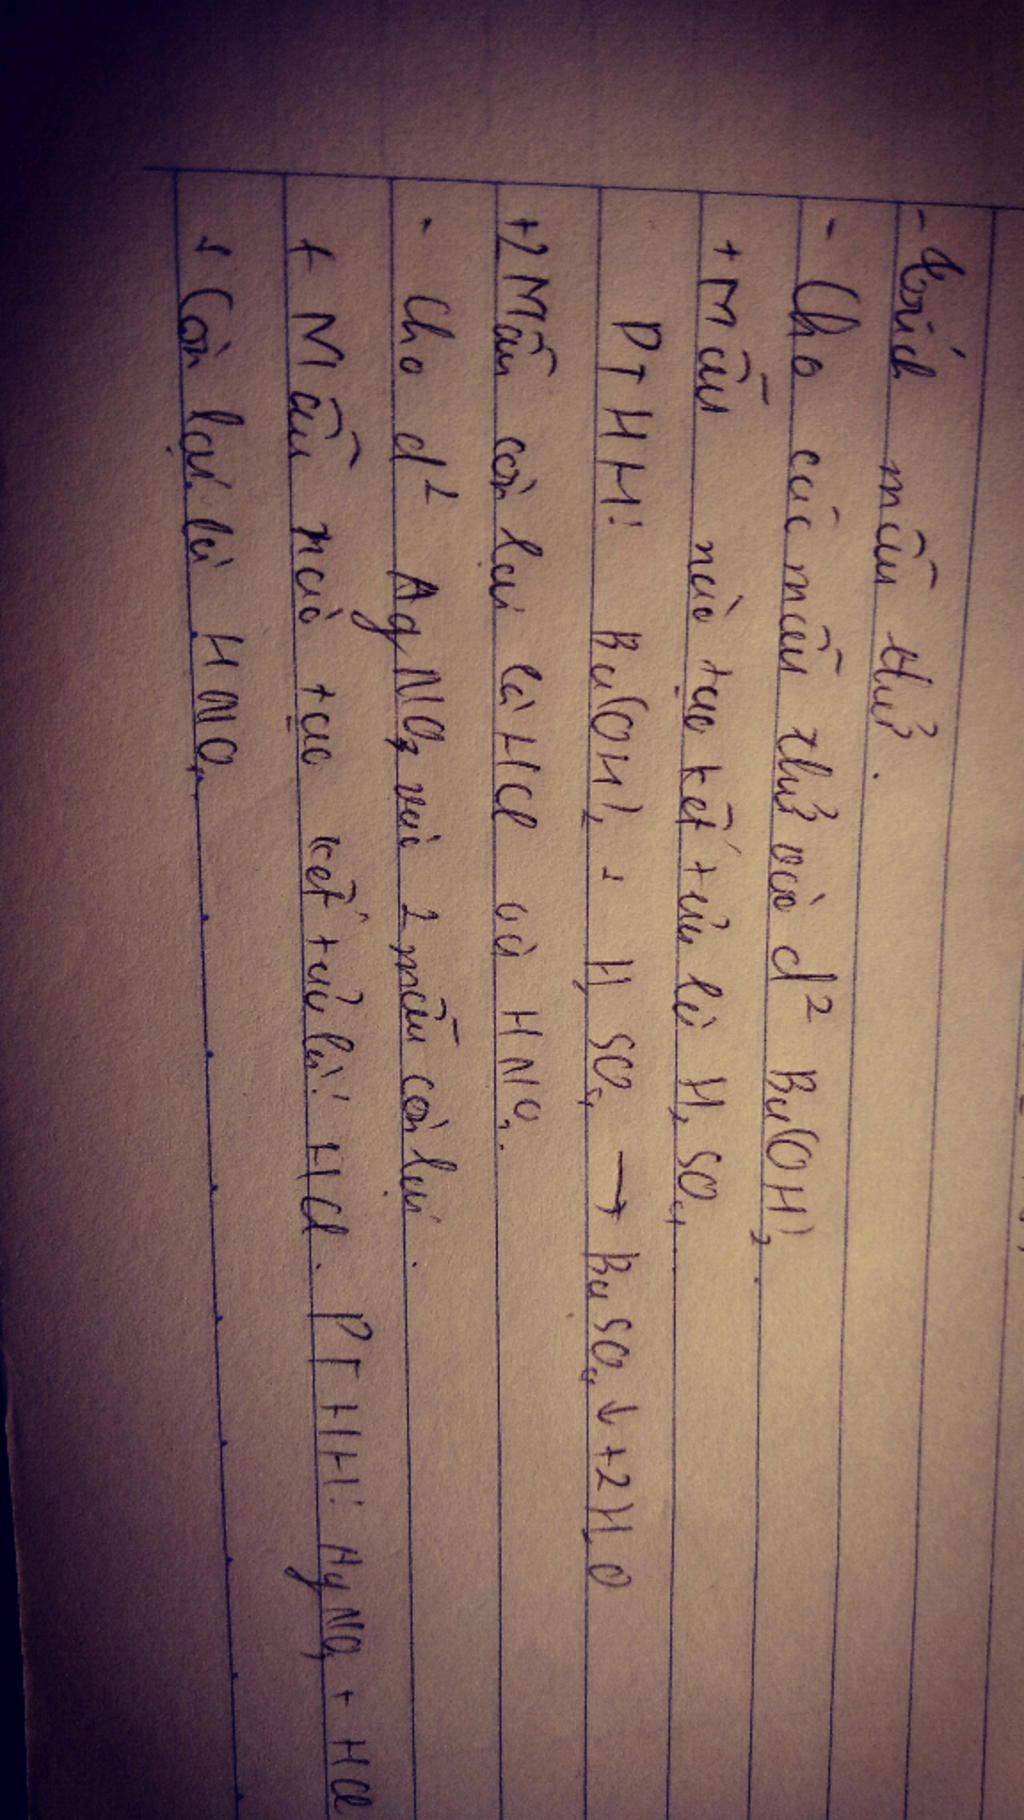 - Trích mẫu thử.
- Cho các mẫu thử vào d² Ba(OH)₂.
+ Mẫu nào tạo kết tủa là H₂SO₄.
PTHH: Ba(OH)₂ + H₂SO₄ → BaSO₄ ↓ + 2H₂O
+ 2 Mẫu còn lại là HCl và HNO₃.
- Cho d² AgNO₃ vào 2 mẫu còn lại.
+ Mẫu nào tạo kết tủa là: HCl. PTHH: AgNO₃ + HCl
+ Còn lại là HNO₃